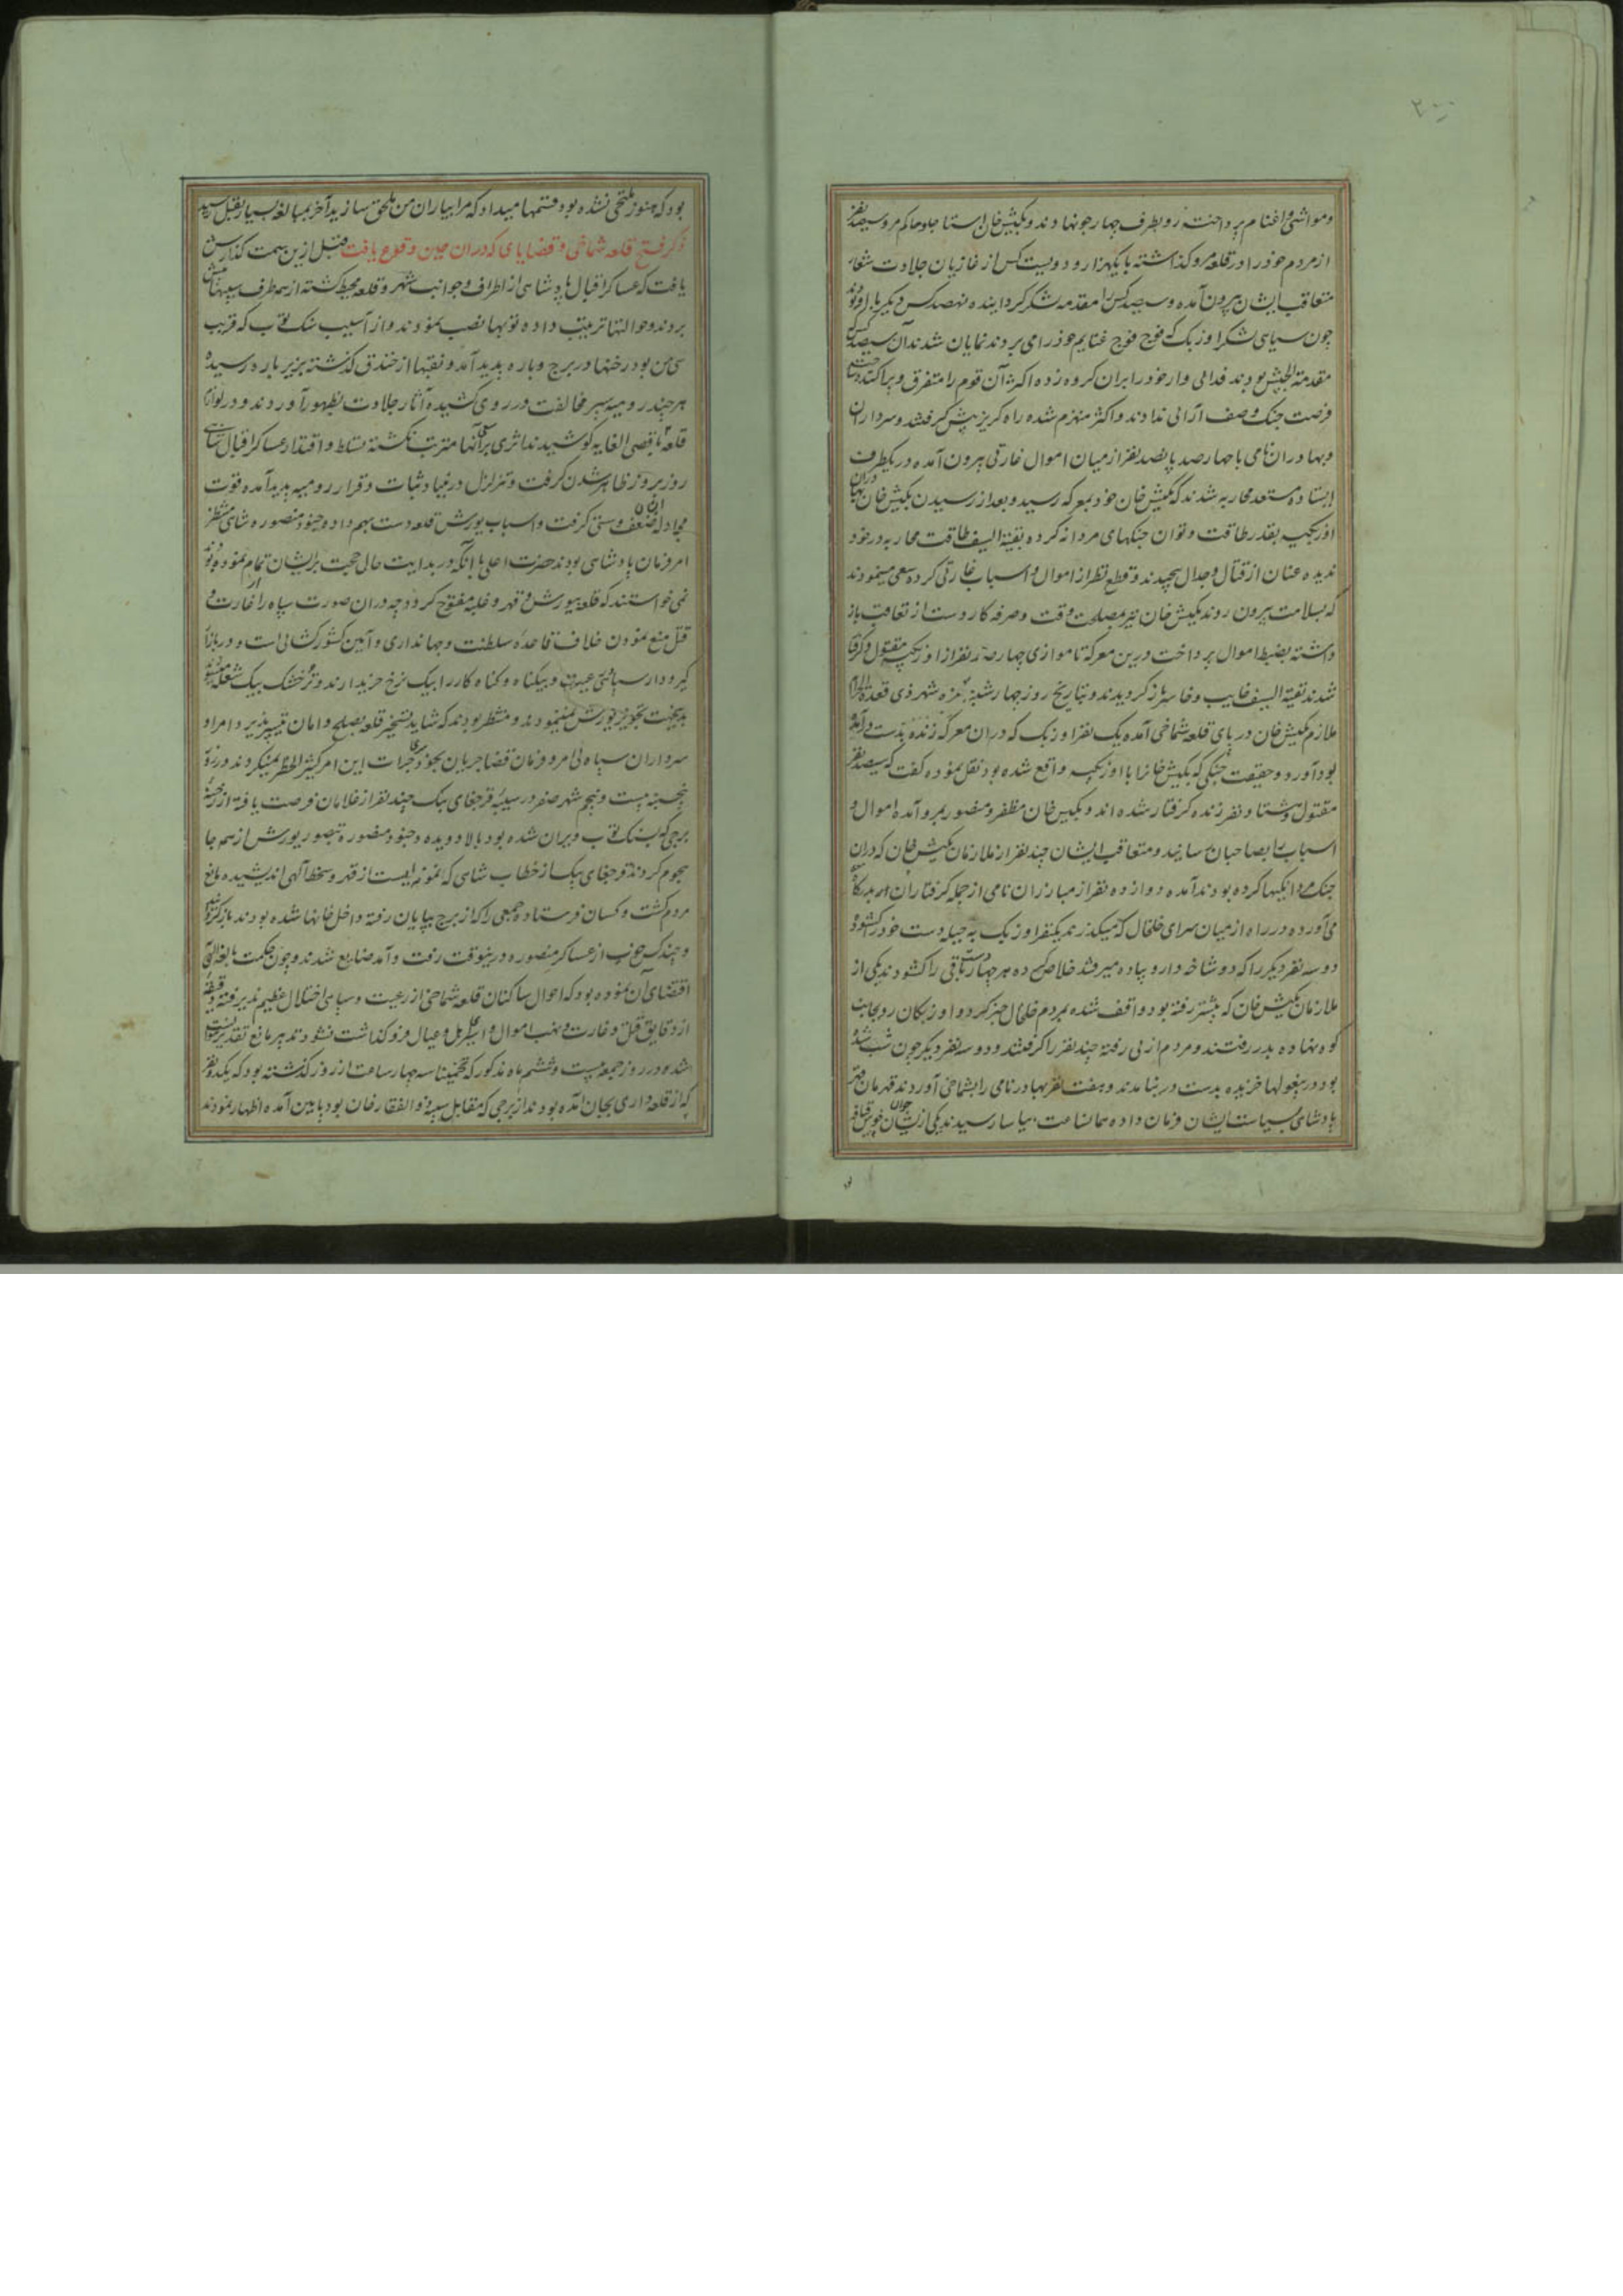 ومواشی و اغنام پرداخته رو بطرف چهارجو نهادند و بکتش خان استاجلو حاکم مرو سیصد نفر
از مردم خود را در قلعه مرو کذاشته با یکهزار و دویست کس از غازیان جلادت شعار
متعاقب ایشان بیرون آمده و سیصد کس را مقدمه لشکر کردانیده نهصد کس دیکر با او بودند
چون سیاهی لشکر اوزبک که فوج فوج غنایم خود را می بردند نمایان شد آن سیصد کس که
مقدمة الجیش بودند فدائی وار خود را بران کروه زده اکثر آن قوم را متفرق و پراکنده ساخته
فرصت جنک و صف آرائی ندادند و اکثر منهزم شده راه کریز پیش کرفتند و سرداران
و بهادران نامی با چهارصد پانصد نفر از میان اموال غارتی بیرون آمده در یکطرف
ایستاده مستعد محاربه شدند که بکتش خان خود بمعرکه رسید و بعد از رسیدن بکتش خان بهادران
اوزبکیه بقدر طاقت و توان جنکهای مردانه کرده بقیة السیف طاقت محاربه در خود
ندیده عنان از قتال و جدال پیچیدند و قطع نظر از اموال و اسباب غارتی کرده سعی مینمودند
که بسلامت بیرون روند بکتش خان نیز مصلحت وقت و صرفه کار دست از تعاقب باز
داشته بضبط اموال پرداخت درین معرکه تا موازی چهارصد نفر از اوزبکیه مقتول و کرفتار
شدند بقیة السیف خایب و خاسر باز کردیدند و بتاریخ روز چهارشنبه غره شهر ذی قعدة الحرام
ملازم بکتش خان در پای قلعه شماخی آمده یک نفر اوزبک که دران معرکه زنده بدست درآمده
بود آورد و حقیقت جنکی که بکتش خانرا با اوزبکیه واقع شده بود نقل نموده کفت که سیصد نفر
مقتول و هشتاد نفر زنده کرفتار شده اند و بکتش خان مظفر و منصور بمرو آمده اموال و
اسباب را بصاحبان رسانید و متعاقب ایشان چند نفر از ملازمان بکتش خان که دران
جنک مردانکیها کرده بودند آمده دوازده نفر از مبارزان نامی از جمله کرفتاران همراه بدرکاه
می آورده در راه از میان سرای خلخال که میکذرند یکنفر اوزبک به حیله دست خود را کشوده
دو سه نفر دیکر را که دو شاخه دار و پیاده میرفتند خلاص کرده هر چهار دست باقی را کشودند یکی از
ملازمان بکتش خان که پیشتر رفته بود واقف شده بمردم خلخال خبر کرد و اوزبکان رو بجانب
کوه نهاده بدر رفتند و مردم از پی رفته چند نفر را کرفتند و دو سه نفر دیکر چون شب شده
بود در بیغولها خزیده بدست در نیامدند و هفت نفر بهادر نامی را بشماخی آوردند قهرمان قهر
پادشاهی بسیاست ایشان فرمان داده همانساعت بیاسا رسیدند یکی از ایشان جوان خوش قیافه
بود که هنوز ملتحی نشده بود قسمها میداد که مرا بیاران من ملحق سازید آخر بمبالغه بسیار بقتل رسید
ذکر فتح قلعه شماخی و قضایای که دران حین وقوع یافت قبل ازین سمت کذارش
یافت که عساکر اقبال پادشاهی از اطراف و جوانب شهر و قلعه محیط کشته از هر طرف سیبها پیش
بردند و حوالتها ترتیب داده توپها نصب نمودند و از آسیب سنک توپ که قریب
سی من بود رخنها در برج و باره پدید آمد و نقبها از خندق کذشته بزیر باره رسیده
هر چند رومیه سپر مخالفت در روی کشیده آثار جلادت بظهور آوردند و در لوازم
قلعه باقصی الغایه کوشیدند اثری برانها مترتب نکشته تسلط و اقتدار عساکر اقبال شاهی
روز بروز ظاهر شدن کرفت و تزلزل در بنیاد ثبات و قرار رومیه پدید آمده قوت
مجادله ایشان ضعف و سستی کرفت و اسباب یورش قلعه دست بهم داده جنود منصوره شاهی منتظر
امر و فرمان پادشاهی بودند حضرت اعلی با آنکه در بدایت حال حجت برایشان تمام نموده بودند
نمی خواستند که قلعه بیورش و قهر و غلبه مفتوح کردد چه دران صورت سپاه را از غارت و
قتل منع نمودن خلاف قاعده سلطنت و جهانداری و آیین کشورکشائی است و در بازار
کیرودار سپاهی و رعیت و بیکناه و کناه کار را بیک نرخ خریدارند و تر و خشک بیک شعله میسوزند
بدینجهت تجویز یورش نمینمودند و منتظر بودند که شاید تسخیر قلعه بصلح و امان تیسیرپذیرد و امرا و
سرداران سپاه بی امر و فرمان قضا جریان بخودسری جرات این امر کثیر الخطر نمیکردند در روز
پنجشنبه بیست و پنجم شهر صفر در سیبه قرچغای بیک چند نفر از غلامان فرصت یافته از رخنه
برجی که بسنک توپ ویران شده بود بالا دویده و جنود منصوره بتصور یورش از همه جا
هجوم کردند قرچغای بیک از خطاب شاهی که نمونه ایست از قهر و سخط الهی اندیشیده مانع
مردم کشت و کسان فرستاد و جمعی را که از برج بپایان رفته داخل خانها شده بودند باز کردانید
و چند کس خوب از عساکر منصوره درینوقت رفت و آمد ضایع شدند و چون حکمت بالغه الهی
اقتضای آن نموده بود که احوال ساکنان قلعه شماخی از رعیت و سپاهی اختلال عظیم پذیرفته دقیقه
از دقایق قتل و غارت و نهب اموال و اسیری اهل و عیال فروکذاشت نشود تدبیر مانع تقدیر نتوانست
شد و در روز جمعه بیست و ششم ماه مذکور که تخمینا سه چهار ساعت از روز کذشته بود که یکدو نفر
که از قلعه داری بجان آمده بودند از برجی که مقابل سیبه ذوالفقار خان بود بپایین آمده اظهار نمودند